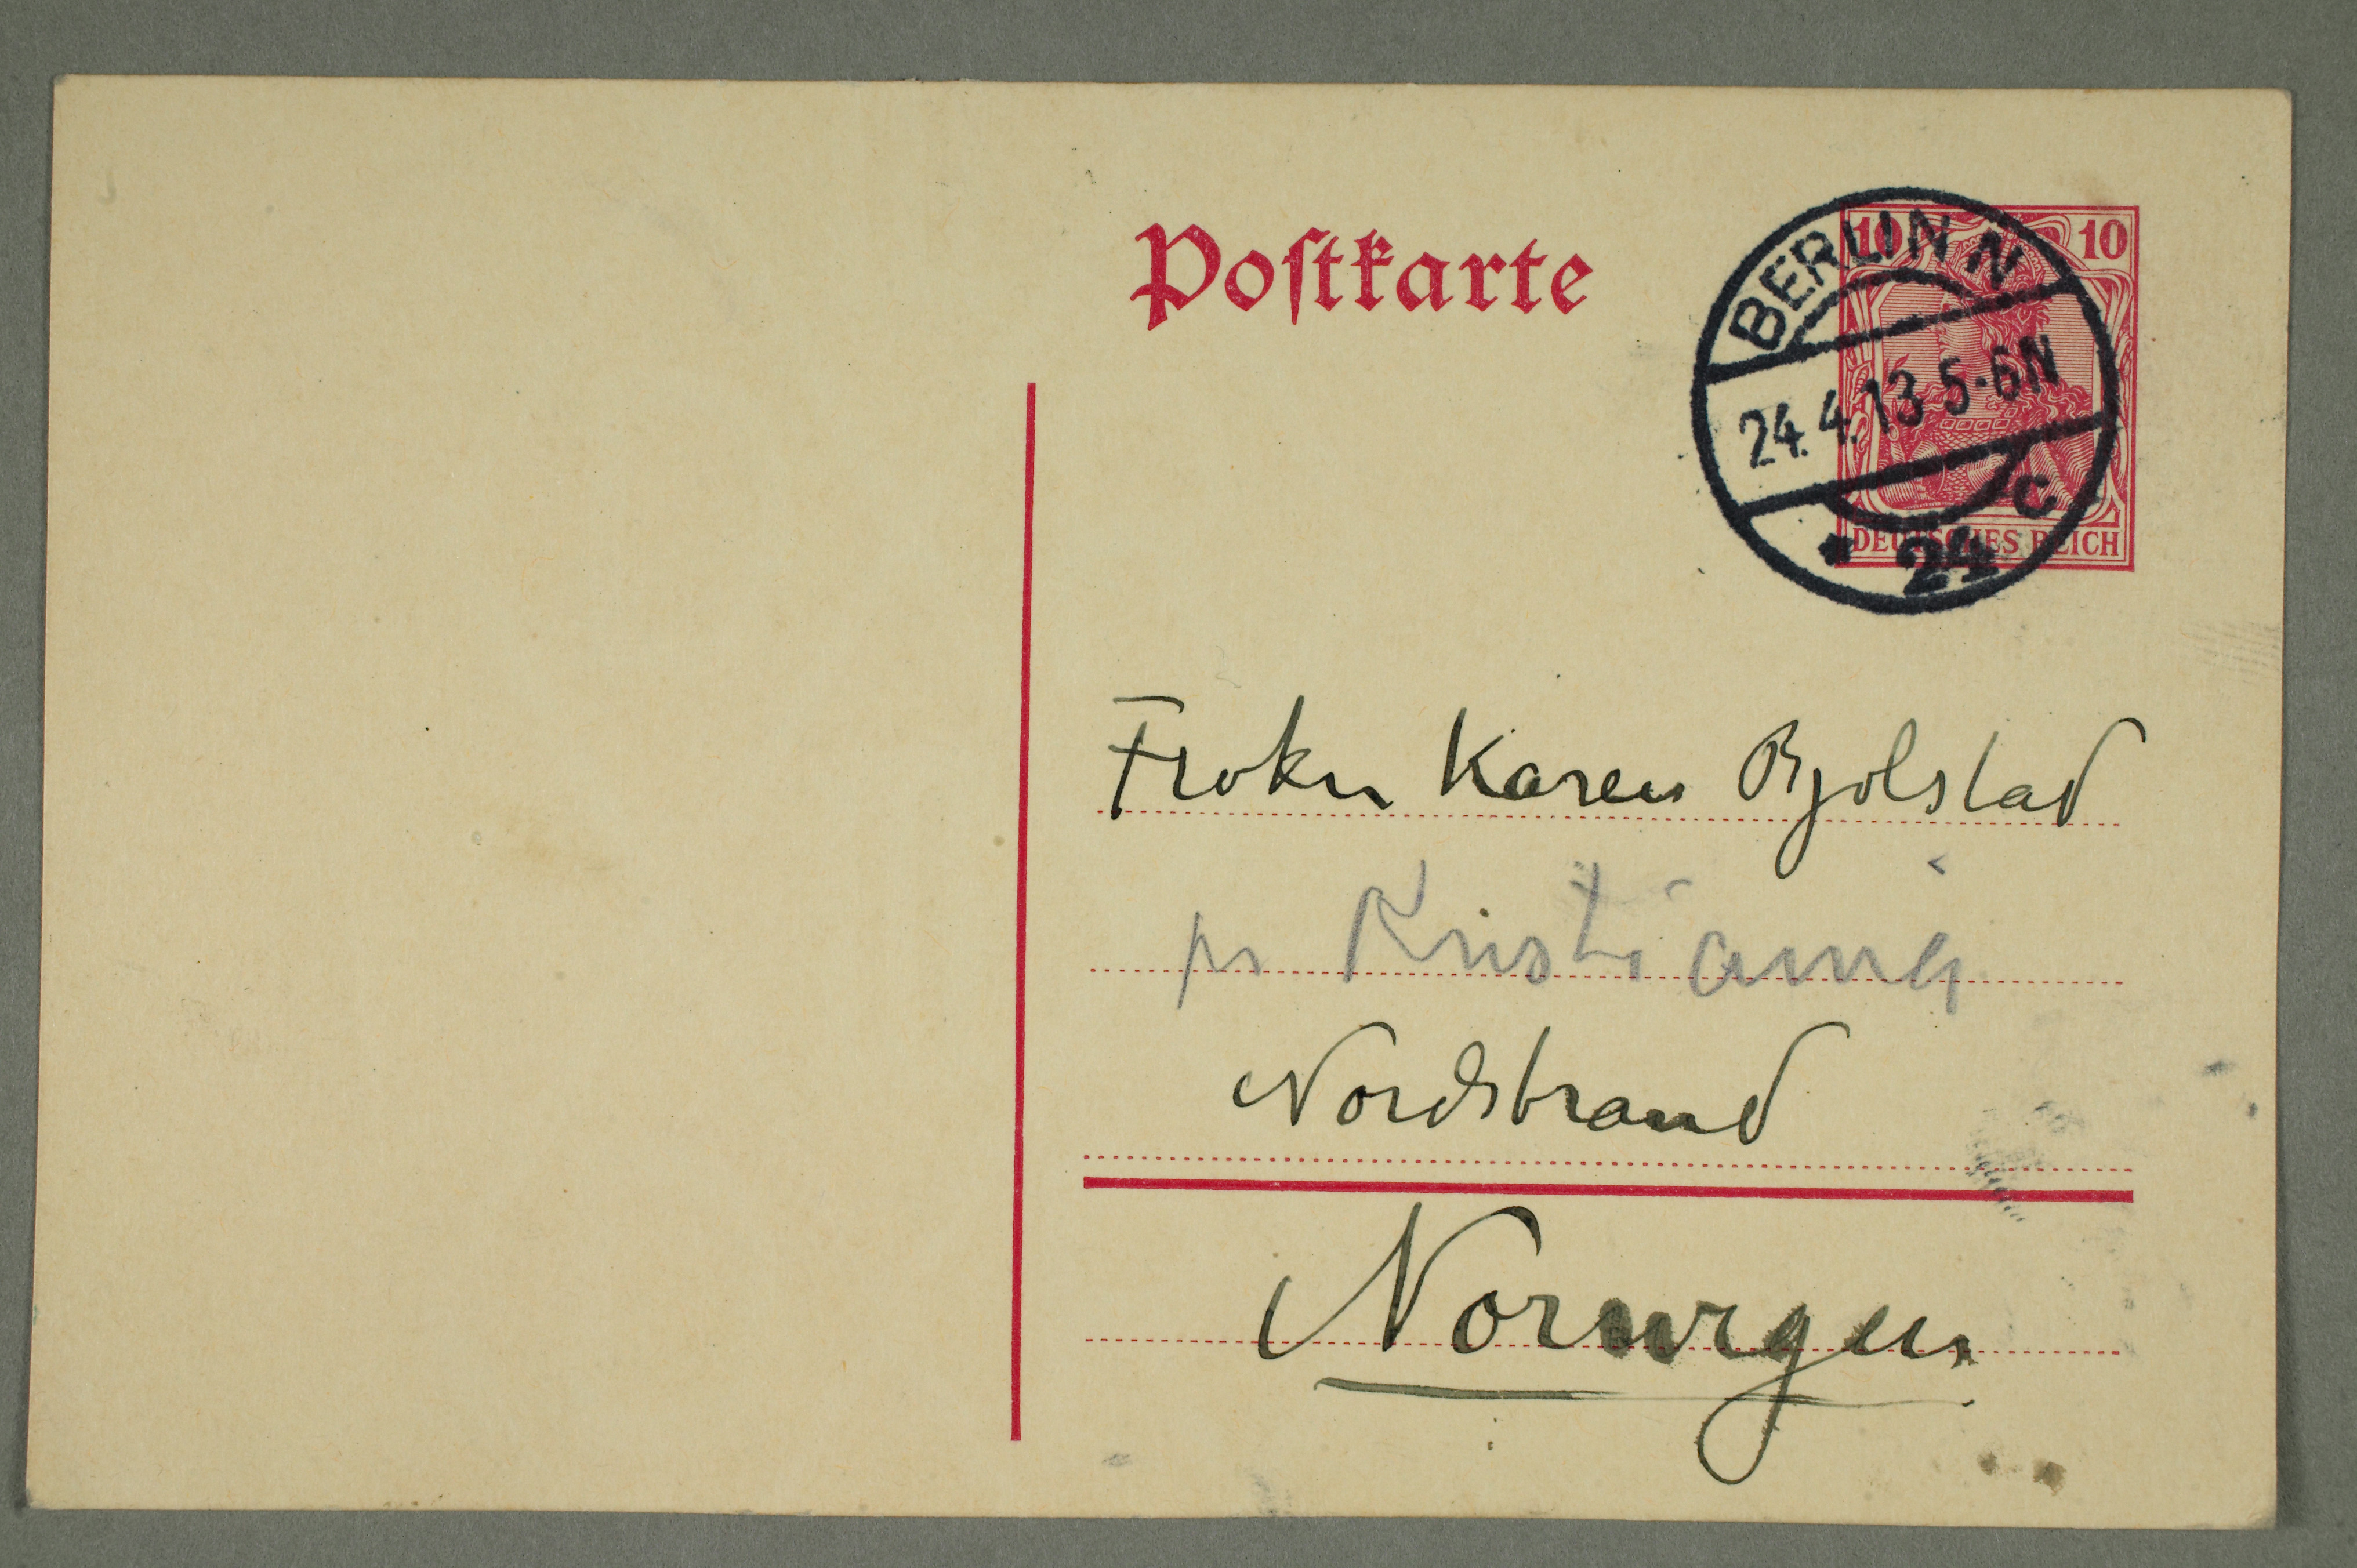 Postkarte
10 10
BERLIN N
24.4.13 5-6N
* 24 c
DEUTSCHES REICH
Frøken Karen Bjølstad
pr Kristiania
Nordstrand
Norwegen